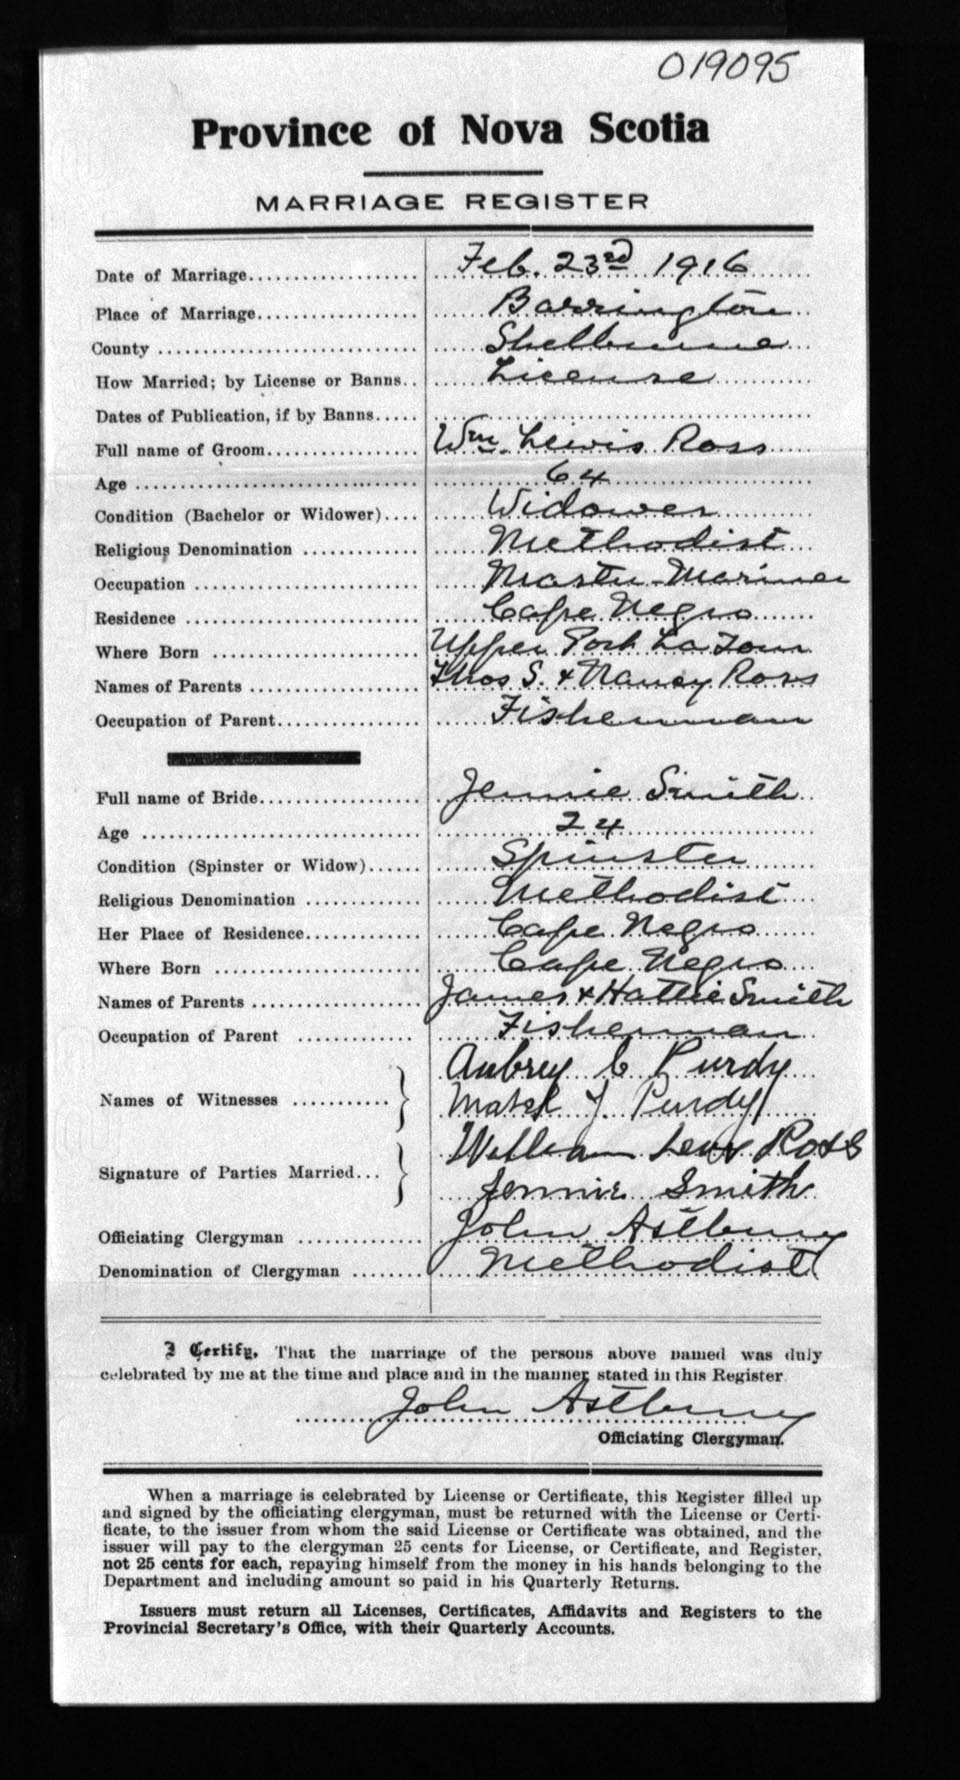 019095
Province of Nova Scotia
MARRIAGE REGISTER
Date of Marriage.................... Feb. 23rd 1916
Place of Marriage................... Barrington
County ............................. Shelburne
How Married; by License or Banns.. License
Dates of Publication, if by Banns.....
Full name of Groom.................. Wm. Lewis Ross
Age ................................ 64
Condition (Bachelor or Widower).... Widower
Religious Denomination ............. Methodist
Occupation ......................... Master Mariner
Residence .......................... Cape Negro
Where Born ......................... Upper Port La Tour
Names of Parents ................... Thos S. & Nancy Ross
Occupation of Parent................ Fisherman
Full name of Bride.................. Jennie Smith
Age ................................ 24
Condition (Spinster or Widow)...... Spinster
Religious Denomination ............. Methodist
Her Place of Residence............. Cape Negro
Where Born ......................... Cape Negro
Names of Parents ................... James & Hattie Smith
Occupation of Parent ............. Fisherman
Aubrey C Purdy
Names of Witnesses ...........
Purdy
William Ross
Signature of Parties Married...
Jennie Smith
Officiating Clergyman .............. John Astbury
Denomination of Clergyman ........ Methodist
I Certify, That the marriage of the persons above named was duly
celebrated by me at the time and place and in the manner stated in this Register
John Astbury
Officiating Clergyman.
When a marriage is celebrated by License or Certificate, this Register filled up
and signed by the officiating clergyman, must be returned with the License or Certi-
ficate, to the issuer from whom the said License or Certificate was obtained, and the
issuer will pay to the clergyman 25 cents for License, or Certificate, and Register,
not 25 cents for each, repaying himself from the money in his hands belonging to the
Department and including amount so paid in his Quarterly Returns.
Issuers must return all Licenses, Certificates, Affidavits and Registers to the
Provincial Secretary's Office, with their Quarterly Accounts.